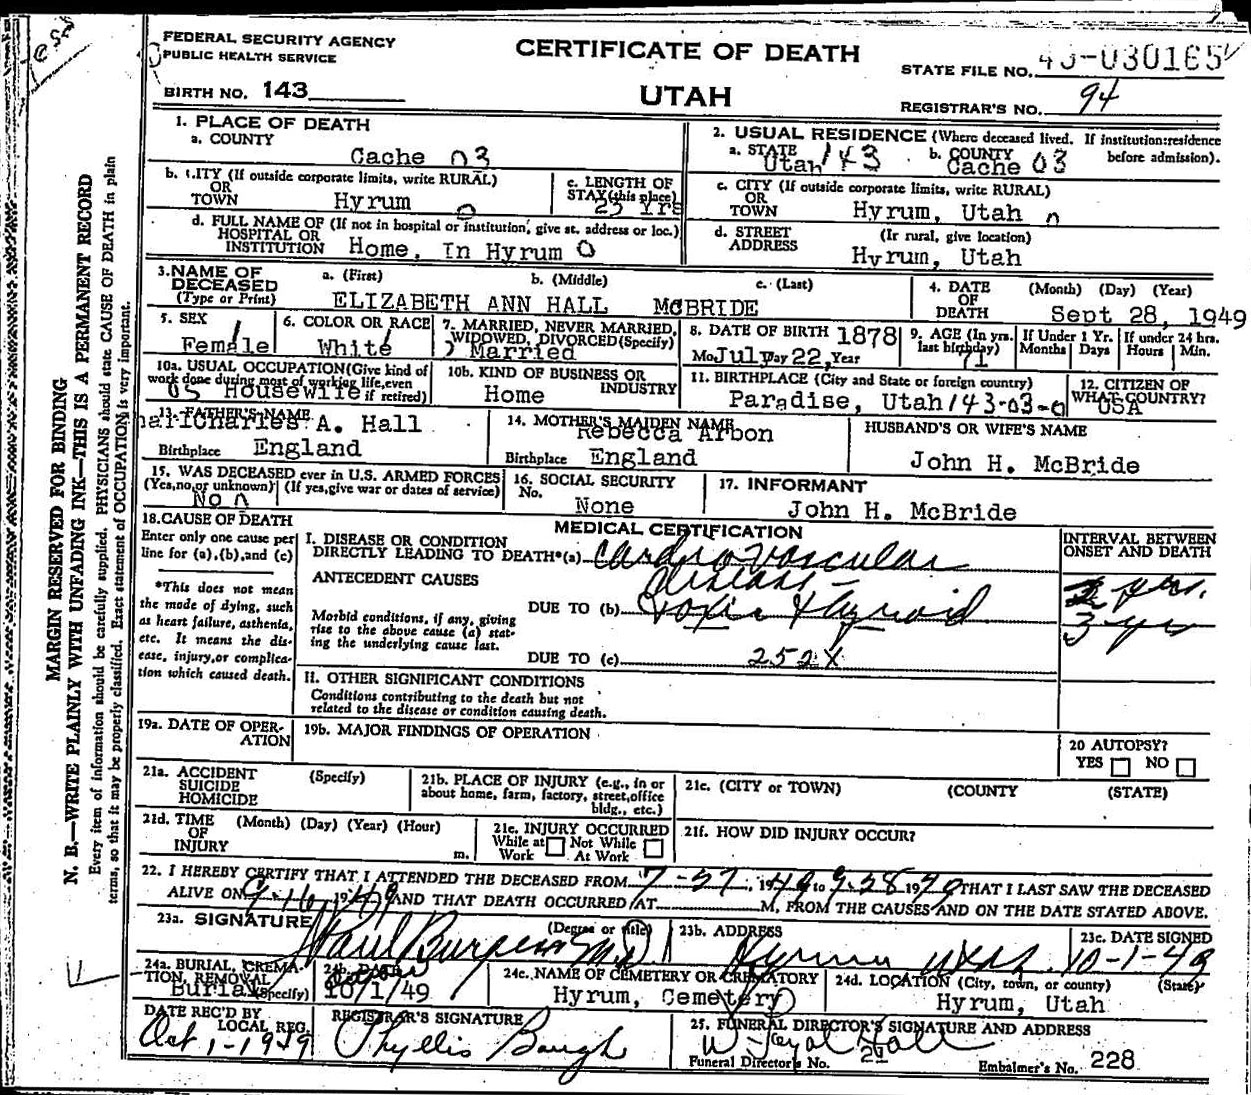 FEDERAL SECURITY AGENCY
PUBLIC HEALTH SERVICE
CERTIFICATE OF DEATH
STATE FILE NO. 030165
BIRTH NO. 143
UTAH
REGISTRAR'S NO. 94
1. PLACE OF DEATH
a. COUNTY
Cache 03
2. USUAL RESIDENCE (Where deceased lived. If institution:residence before admission).
a. STATE Utah 143 b. COUNTY Cache 03
b. CITY (If outside corporate limits, write RURAL)
OR
TOWN Hyrum 0
c. LENGTH OF
STAY (this place)
25 Yrs
c. CITY (If outside corporate limits, write RURAL)
OR
TOWN Hyrum, Utah
d. FULL NAME OF (If not in hospital or institution, give st. address or loc.)
HOSPITAL OR
INSTITUTION Home, In Hyrum 0
d. STREET (If rural, give location)
ADDRESS Hyrum, Utah
3. NAME OF DECEASED
(Type or Print)
a. (First) b. (Middle) c. (Last)
ELIZABETH ANN HALL McBRIDE
4. DATE OF DEATH (Month) (Day) (Year)
Sept 28, 1949
5. SEX
Female
6. COLOR OR RACE
White
7. MARRIED, NEVER MARRIED,
WIDOWED, DIVORCED (Specify)
Married
8. DATE OF BIRTH 1878
Mo. July Day 22, Year
9. AGE (In yrs. last birthday)
71
If Under 1 Yr. Months Days
If under 24 hrs. Hours Min.
10a. USUAL OCCUPATION (Give kind of work done during most of working life, even if retired)
Housewife
10b. KIND OF BUSINESS OR INDUSTRY
Home
11. BIRTHPLACE (City and State or foreign country)
Paradise, Utah 143-03-0
12. CITIZEN OF WHAT COUNTRY?
USA
13. FATHER'S NAME
Charles A. Hall
Birthplace England
14. MOTHER'S MAIDEN NAME
Rebecca Arbon
Birthplace England
HUSBAND'S OR WIFE'S NAME
John H. McBride
15. WAS DECEASED ever in U.S. ARMED FORCES
(Yes, no, or unknown) (If yes, give war or dates of service)
No
16. SOCIAL SECURITY
No. None
17. INFORMANT
John H. McBride
18. CAUSE OF DEATH
Enter only one cause per line for (a), (b), and (c)
*This does not mean the mode of dying, such as heart failure, asthenia, etc. It means the disease, injury, or complication which caused death.
MEDICAL CERTIFICATION
I. DISEASE OR CONDITION
DIRECTLY LEADING TO DEATH*(a) Cardio Vascular
disease-
ANTECEDENT CAUSES
Morbid conditions, if any, giving rise to the above cause (a) stating the underlying cause last.
DUE TO (b) Toxic thyroid
DUE TO (c) 252X
INTERVAL BETWEEN ONSET AND DEATH
2 yrs.
3 yr
II. OTHER SIGNIFICANT CONDITIONS
Conditions contributing to the death but not related to the disease or condition causing death.
19a. DATE OF OPERATION
19b. MAJOR FINDINGS OF OPERATION
20 AUTOPSY?
YES NO
21a. ACCIDENT (Specify)
SUICIDE
HOMICIDE
21b. PLACE OF INJURY (e.g., in or about home, farm, factory, street, office bldg., etc.)
21c. (CITY or TOWN) (COUNTY (STATE)
21d. TIME (Month) (Day) (Year) (Hour)
OF
INJURY m.
21e. INJURY OCCURRED
While at Work Not While At Work
21f. HOW DID INJURY OCCUR?
22. I HEREBY CERTIFY THAT I ATTENDED THE DECEASED FROM 7-27, 1949 to 9-28 1949 THAT I LAST SAW THE DECEASED
ALIVE ON 9-16, 1949 AND THAT DEATH OCCURRED AT M, FROM THE CAUSES AND ON THE DATE STATED ABOVE.
23a. SIGNATURE (Degree or title)
Paul Burgess M.D.
23b. ADDRESS
Hyrum Utah
23c. DATE SIGNED
10-1-49
24a. BURIAL, CREMATION, REMOVAL (Specify)
Burial
24b. DATE
10/1/49
24c. NAME OF CEMETERY OR CREMATORY
Hyrum, Cemetery
24d. LOCATION (City, town, or county) (State)
Hyrum, Utah
DATE REC'D BY LOCAL REG.
Oct 1-1949
REGISTRAR'S SIGNATURE
Phyllis Baugh
25. FUNERAL DIRECTOR'S SIGNATURE AND ADDRESS
W. Loyal Hall
Funeral Director's No. 21 Embalmer's No. 228
MARGIN RESERVED FOR BINDING
N. B.—WRITE PLAINLY WITH UNFADING INK—THIS IS A PERMANENT RECORD
Every item of information should be carefully supplied. PHYSICIANS should state CAUSE OF DEATH in plain
terms, so that it may be properly classified. Exact statement of OCCUPATION is very important.